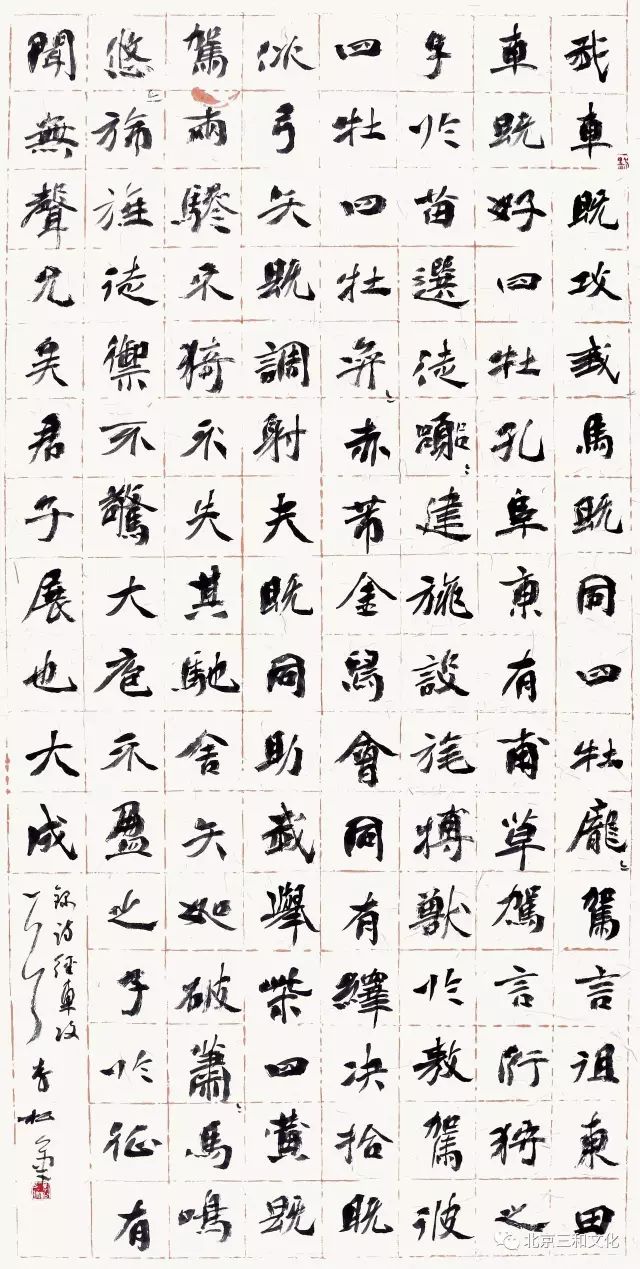 我車既攻我馬既同四牡龐〻駕言徂東田
車既好四牡孔阜東有甫草駕言行狩之
子於苗選徒囂〻建旐設旄搏獸於敖駕彼
四牡四牡奕〻赤芾金舄會同有繹决拾既
佽弓矢既調射夫既同助我舉柴四黃既
駕兩驂不猗不失其馳舍矢如破蕭〻馬鳴
悠〻旆旌徒禦不驚大庖不盈之子於征有
聞無聲允矣君子展也大成
錄詩經車攻
李松
北京三和文化